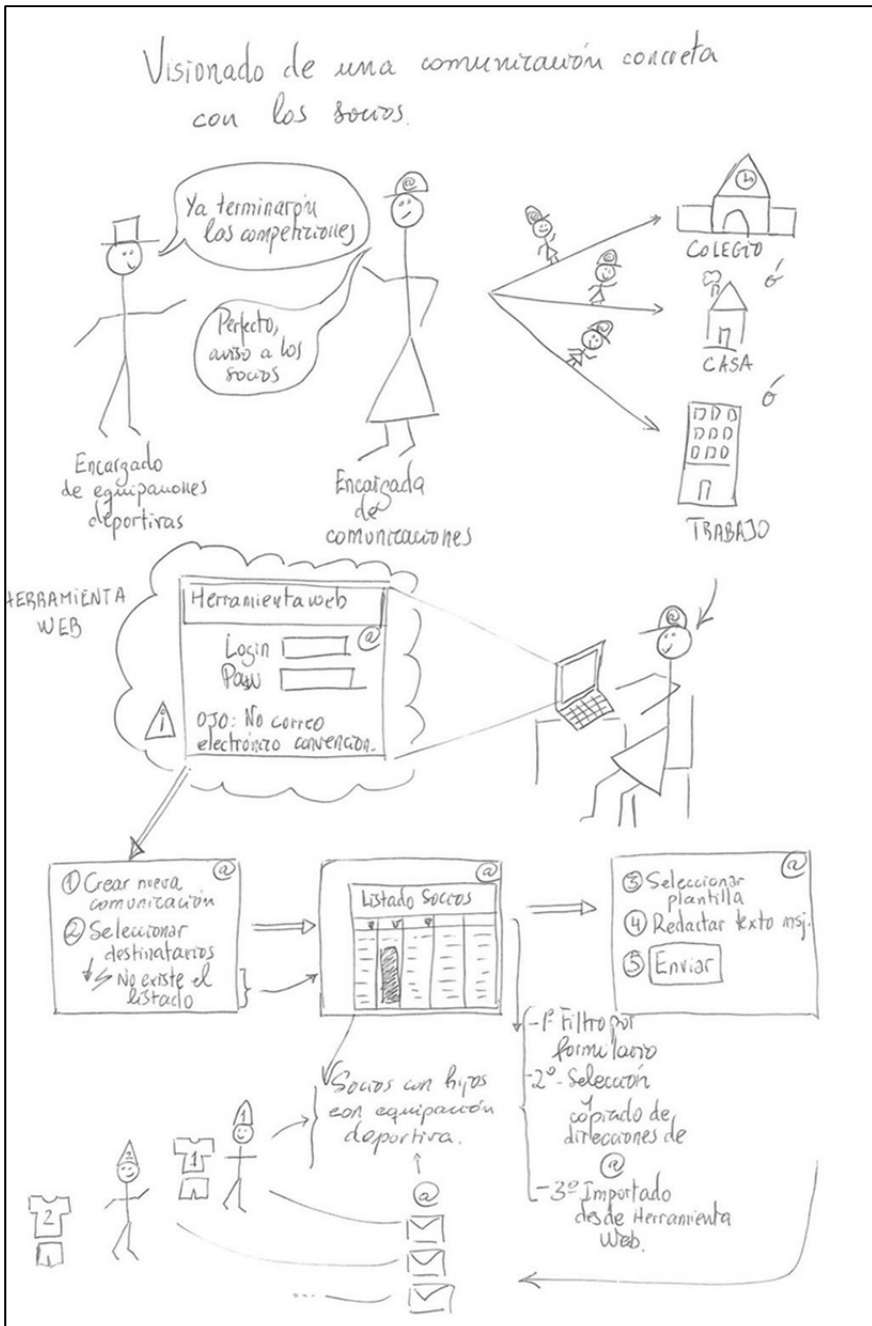 Visionado de una comunicación concreta
con los socios.
Ya terminaron
las competiciones
Perfecto,
aviso a los
socios
Encargado
de equipaciones
deportivas
Encargada
de
comunicaciones
COLEGIO
ó
CASA
ó
TRABAJO
HERRAMIENTA
WEB
Herramienta web
@
Login
Passw
OJO: No correo
electrónico convencion.
i
@
① Crear nueva
comunicación
② Seleccionar
destinatarios
No existe el
listado
@
Listado Socios
@
③ Seleccionar
plantilla
④ Redactar texto msj.
⑤ Enviar
-1º Filtro por
formulario
-2º- Selección
y
copiado de
direcciones de
@
-3º Importado
desde Herramienta
Web.
Socios con hijos
con equipación
deportiva.
@
1
1
2
2
...